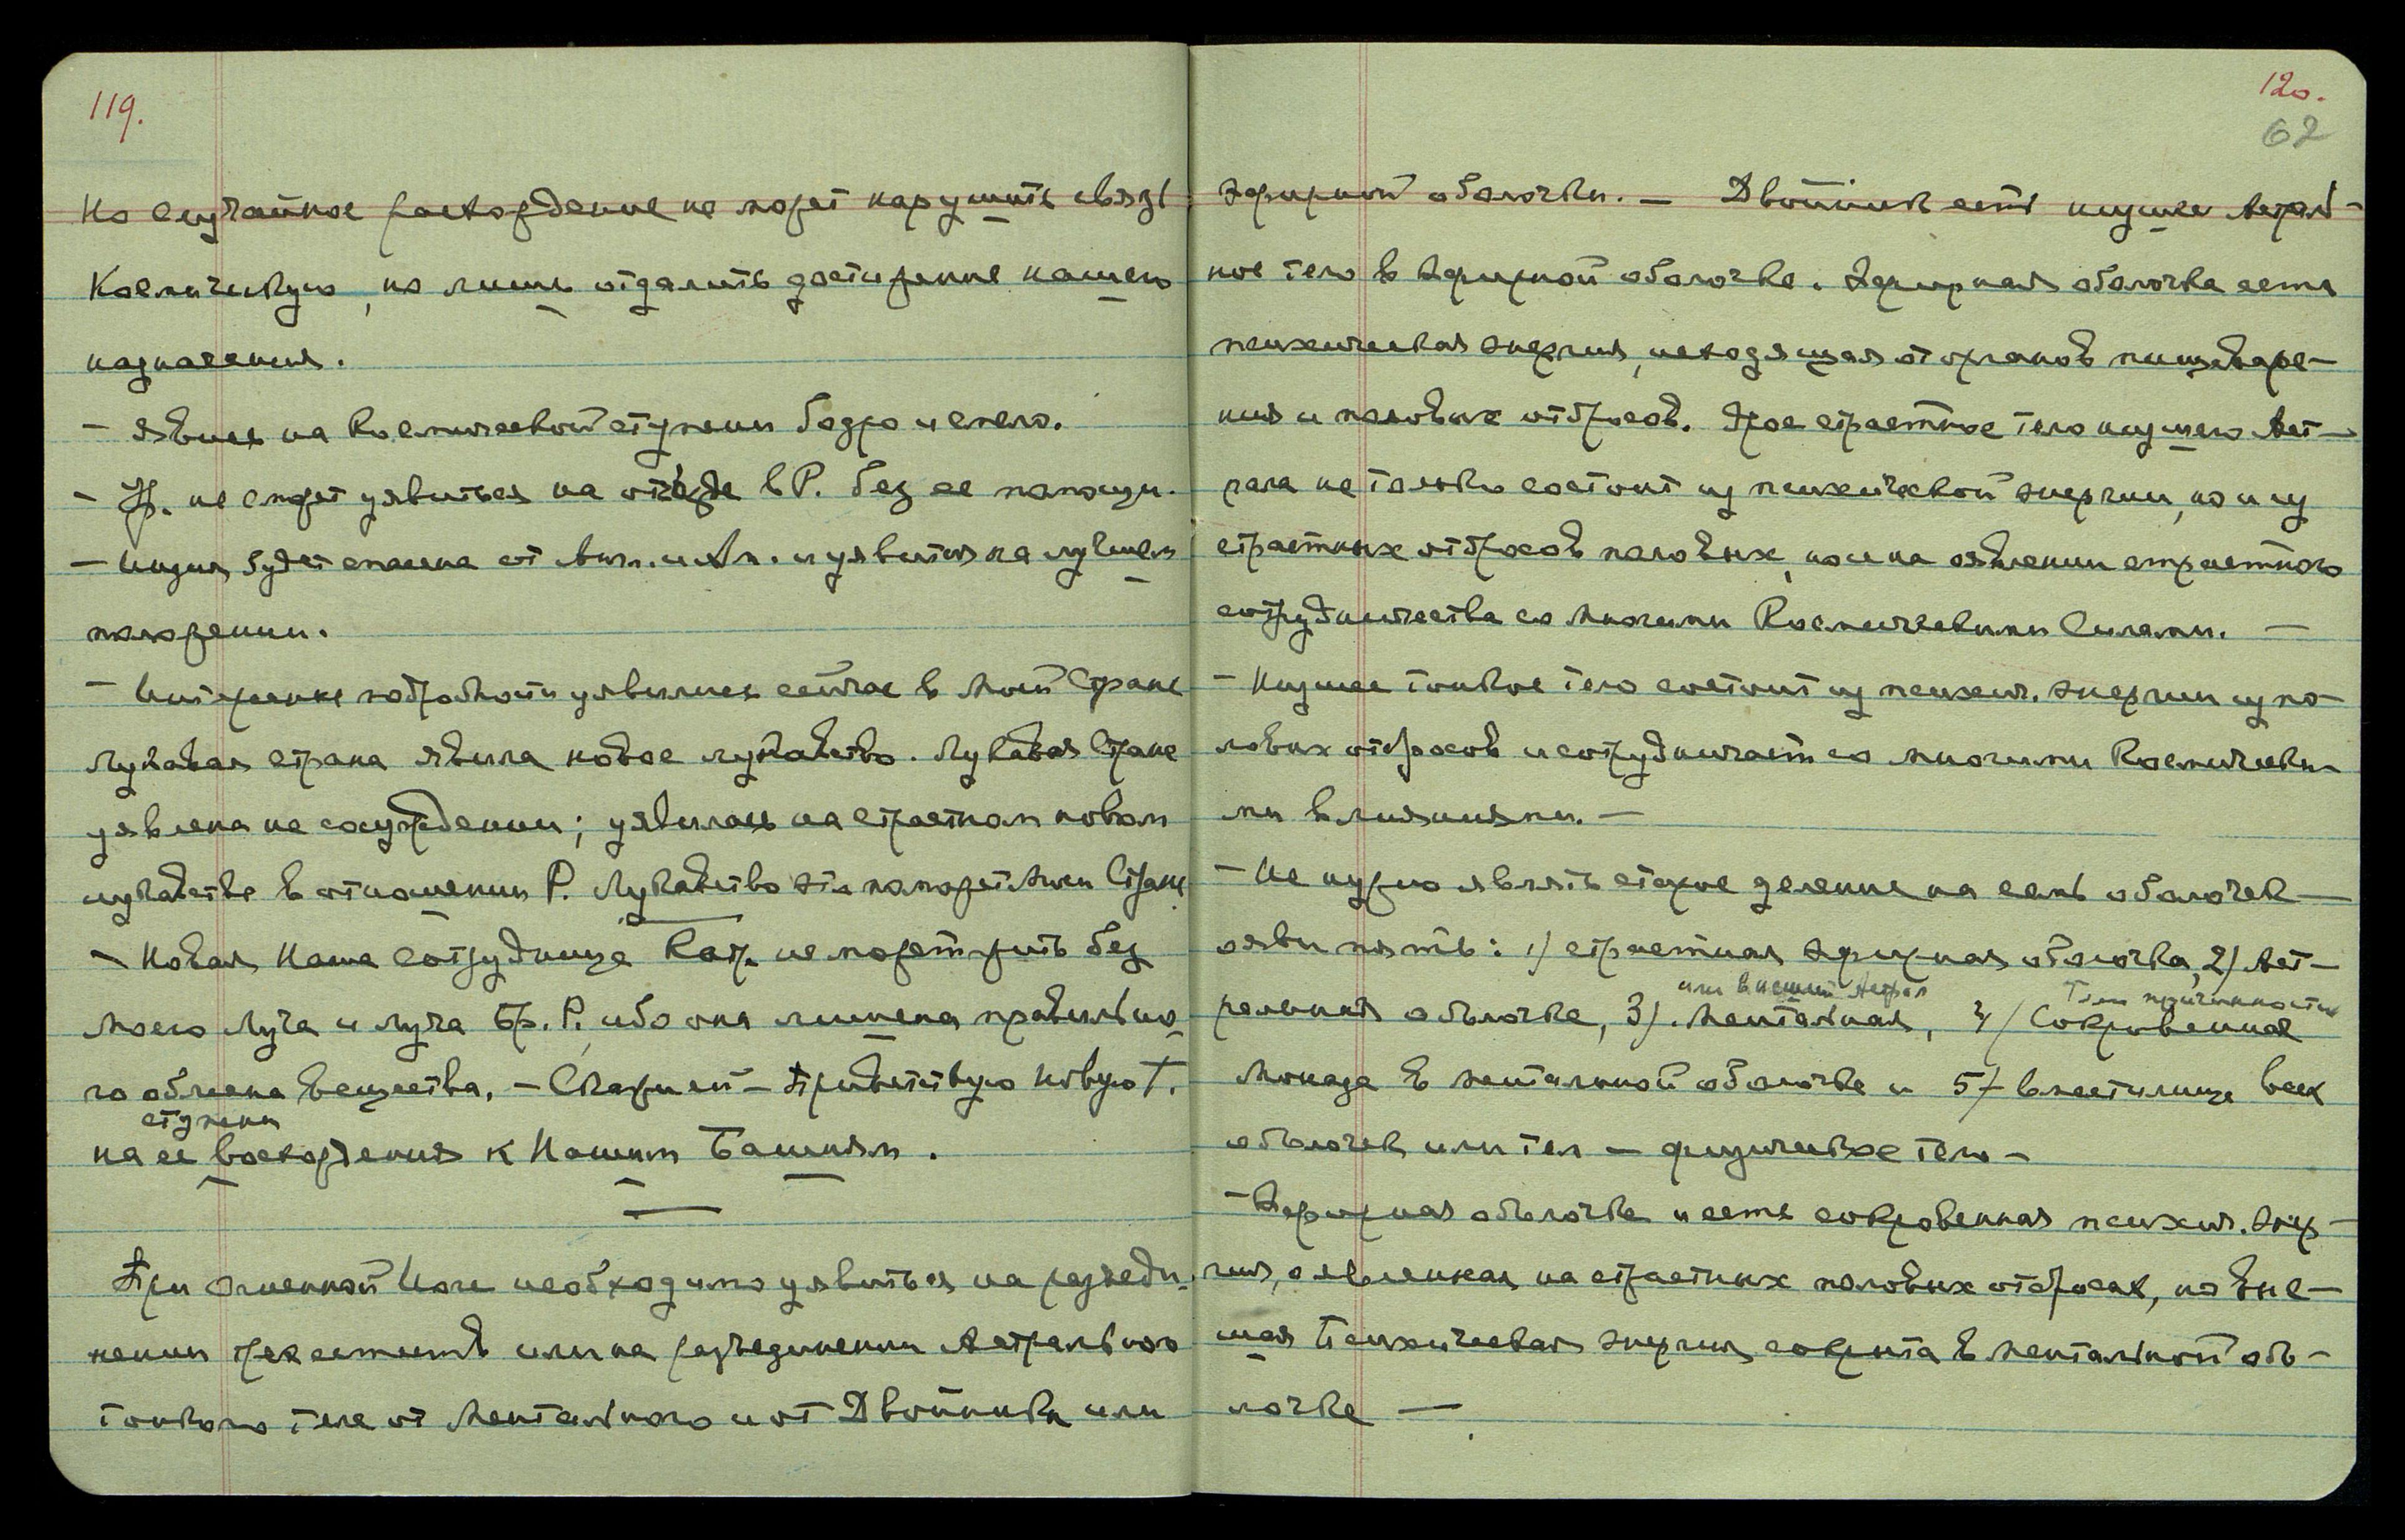 119.
Но случайное расхождение не может нарушить связь
Космическую, но лишь отдалить достижение нашего
назначения.
– Явись на Космической ступени бодро и смело.
– не сможет уявиться на отъезде в Р. без ее помощи.
– Индия будет спасена от и уявится на лучшем
положении.
– Интересные подробности уявились сейчас в Моей Стране
Лукавая страна явила новое лукавство. Лукавая Страна
уявлена на осуждении; уявилась на страстном новом
лукавстве в отношении Р. Лукавство это поможет Моей Стране
– Новая Наша сотрудница Кат. не может жить без
Моего Луча и луча Бр. Р., ибо она лишена правильно
го обмена веществ. – Скажи ей – Приветствую новую Т.
ступени
на ее восхождения к Нашим Башням.
При огненной Йоге необходимо уявиться на разъеди-
нении трех естеств или на разъединении Астрального
тонкого тела от Ментального и от Двойника или
120.
62
эфирной оболочки. – Двойник есть низшее Астраль-
ное тело в эфирной оболочке. Эфирная оболочка есть
психическая энергия, исходящая от органов пищеваре-
ния и половых отбросов. Грое страстное тело низшего Аст-
рала не только состоит из психической энергии, но и из
страстных отбросов половых, но и на оявлении страстного
сотрудничества со многими Космическими Силами. –
– Низшее тонкое тело состоит из психич. энергии из по-
ловых отбросов и сотрудничает со многими Космически-
ми влияниями. –
– Не нужно являть старое деление на семь оболочек –
ояви пять: 1) страстная эфирная оболочка, 2) Аст-
или высший Астрал Тело причинности
ральная оболочка, 3). Ментальная, 4) Сокровенная
Монада в ментальной оболочке и 5) вместилище всех
оболочек или тел – физическое тело –
– Эфирная оболочка и есть сокровенная психич. энер-
гия, оявленная на страстных половых отбросах, но выс-
шая Психическая энергия сокрыта в ментальной обо-
лочке –